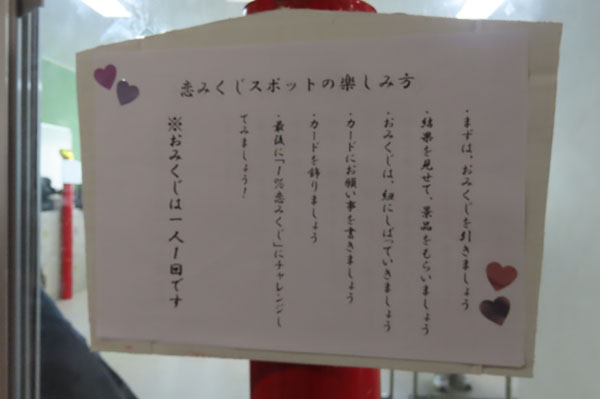 恋みくじスポットの楽しみ方
・まずは、おみくじを引きましょう
・結果を見せて、景品をもらいましょう
・おみくじは、紐にしばっていきましょう
・カードにお願い事を書きましょう
・カードを飾りましょう
・最後に「1%恋みくじ」にチャレンジし
てみましょう！
※おみくじは一人1回です